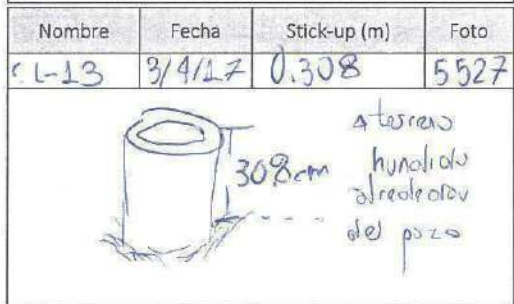 Nombre Fecha Stick-up (m) Foto
CL-13 3/4/17 0.308 5527
308cm
terreno
hundido
alrededor
del pozo